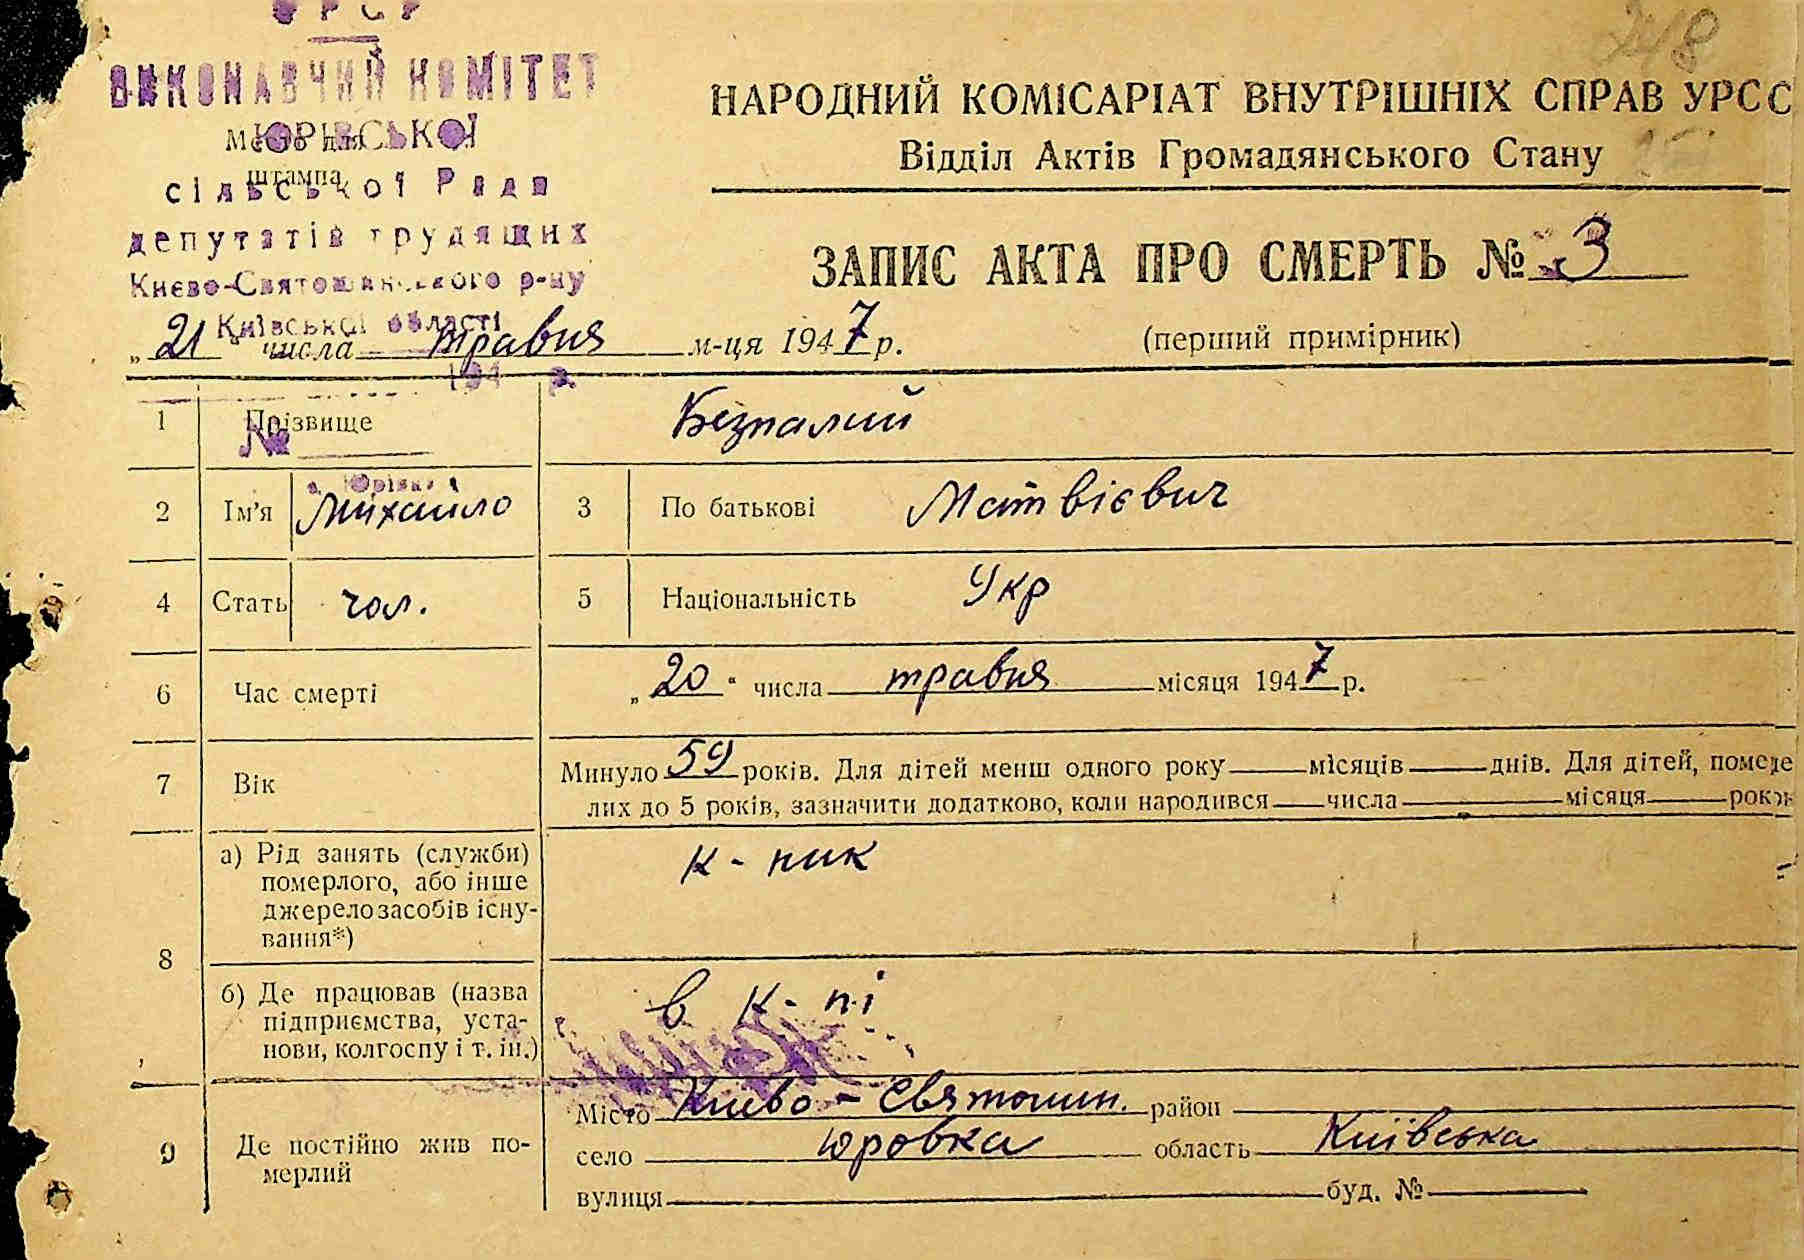 УРСР
ВИКОНАВЧИЙ КОМІТЕТ
ЮРІВСЬКОЇ
Місце для
штампа
сільської Ради
депутатів трудящих
Києво-Святошинського р-ну
Київської області
194 р.
№
с. Юрівка
248
НАРОДНИЙ КОМІСАРІАТ ВНУТРІШНІХ СПРАВ УРСС
Відділ Актів Громадянського Стану
ЗАПИС АКТА ПРО СМЕРТЬ № 3
„21“ числа травня м-ця 1947 р.
(перший примірник)
1 Прізвище Безпалий
2 Ім'я Михайло 3 По батькові Матвієвич
4 Стать чол. 5 Національність Укр
6 Час смерті „20“ числа травня місяця 1947 р.
7 Вік Минуло 59 років. Для дітей менш одного року місяців днів. Для дітей, помер
лих до 5 років, зазначити додатково, коли народився числа місяця рок
8 а) Рід занять (служби)
померлого, або інше
джерело засобів існу-
вання*)
к-ник
б) Де працював (назва
підприємства, уста-
нови, колгоспу і т. ін.)
в к-пі
9 Де постійно жив по-
мерлий
Місто Києво-Святошин. район
село Юровка область Київська
вулиця буд. №